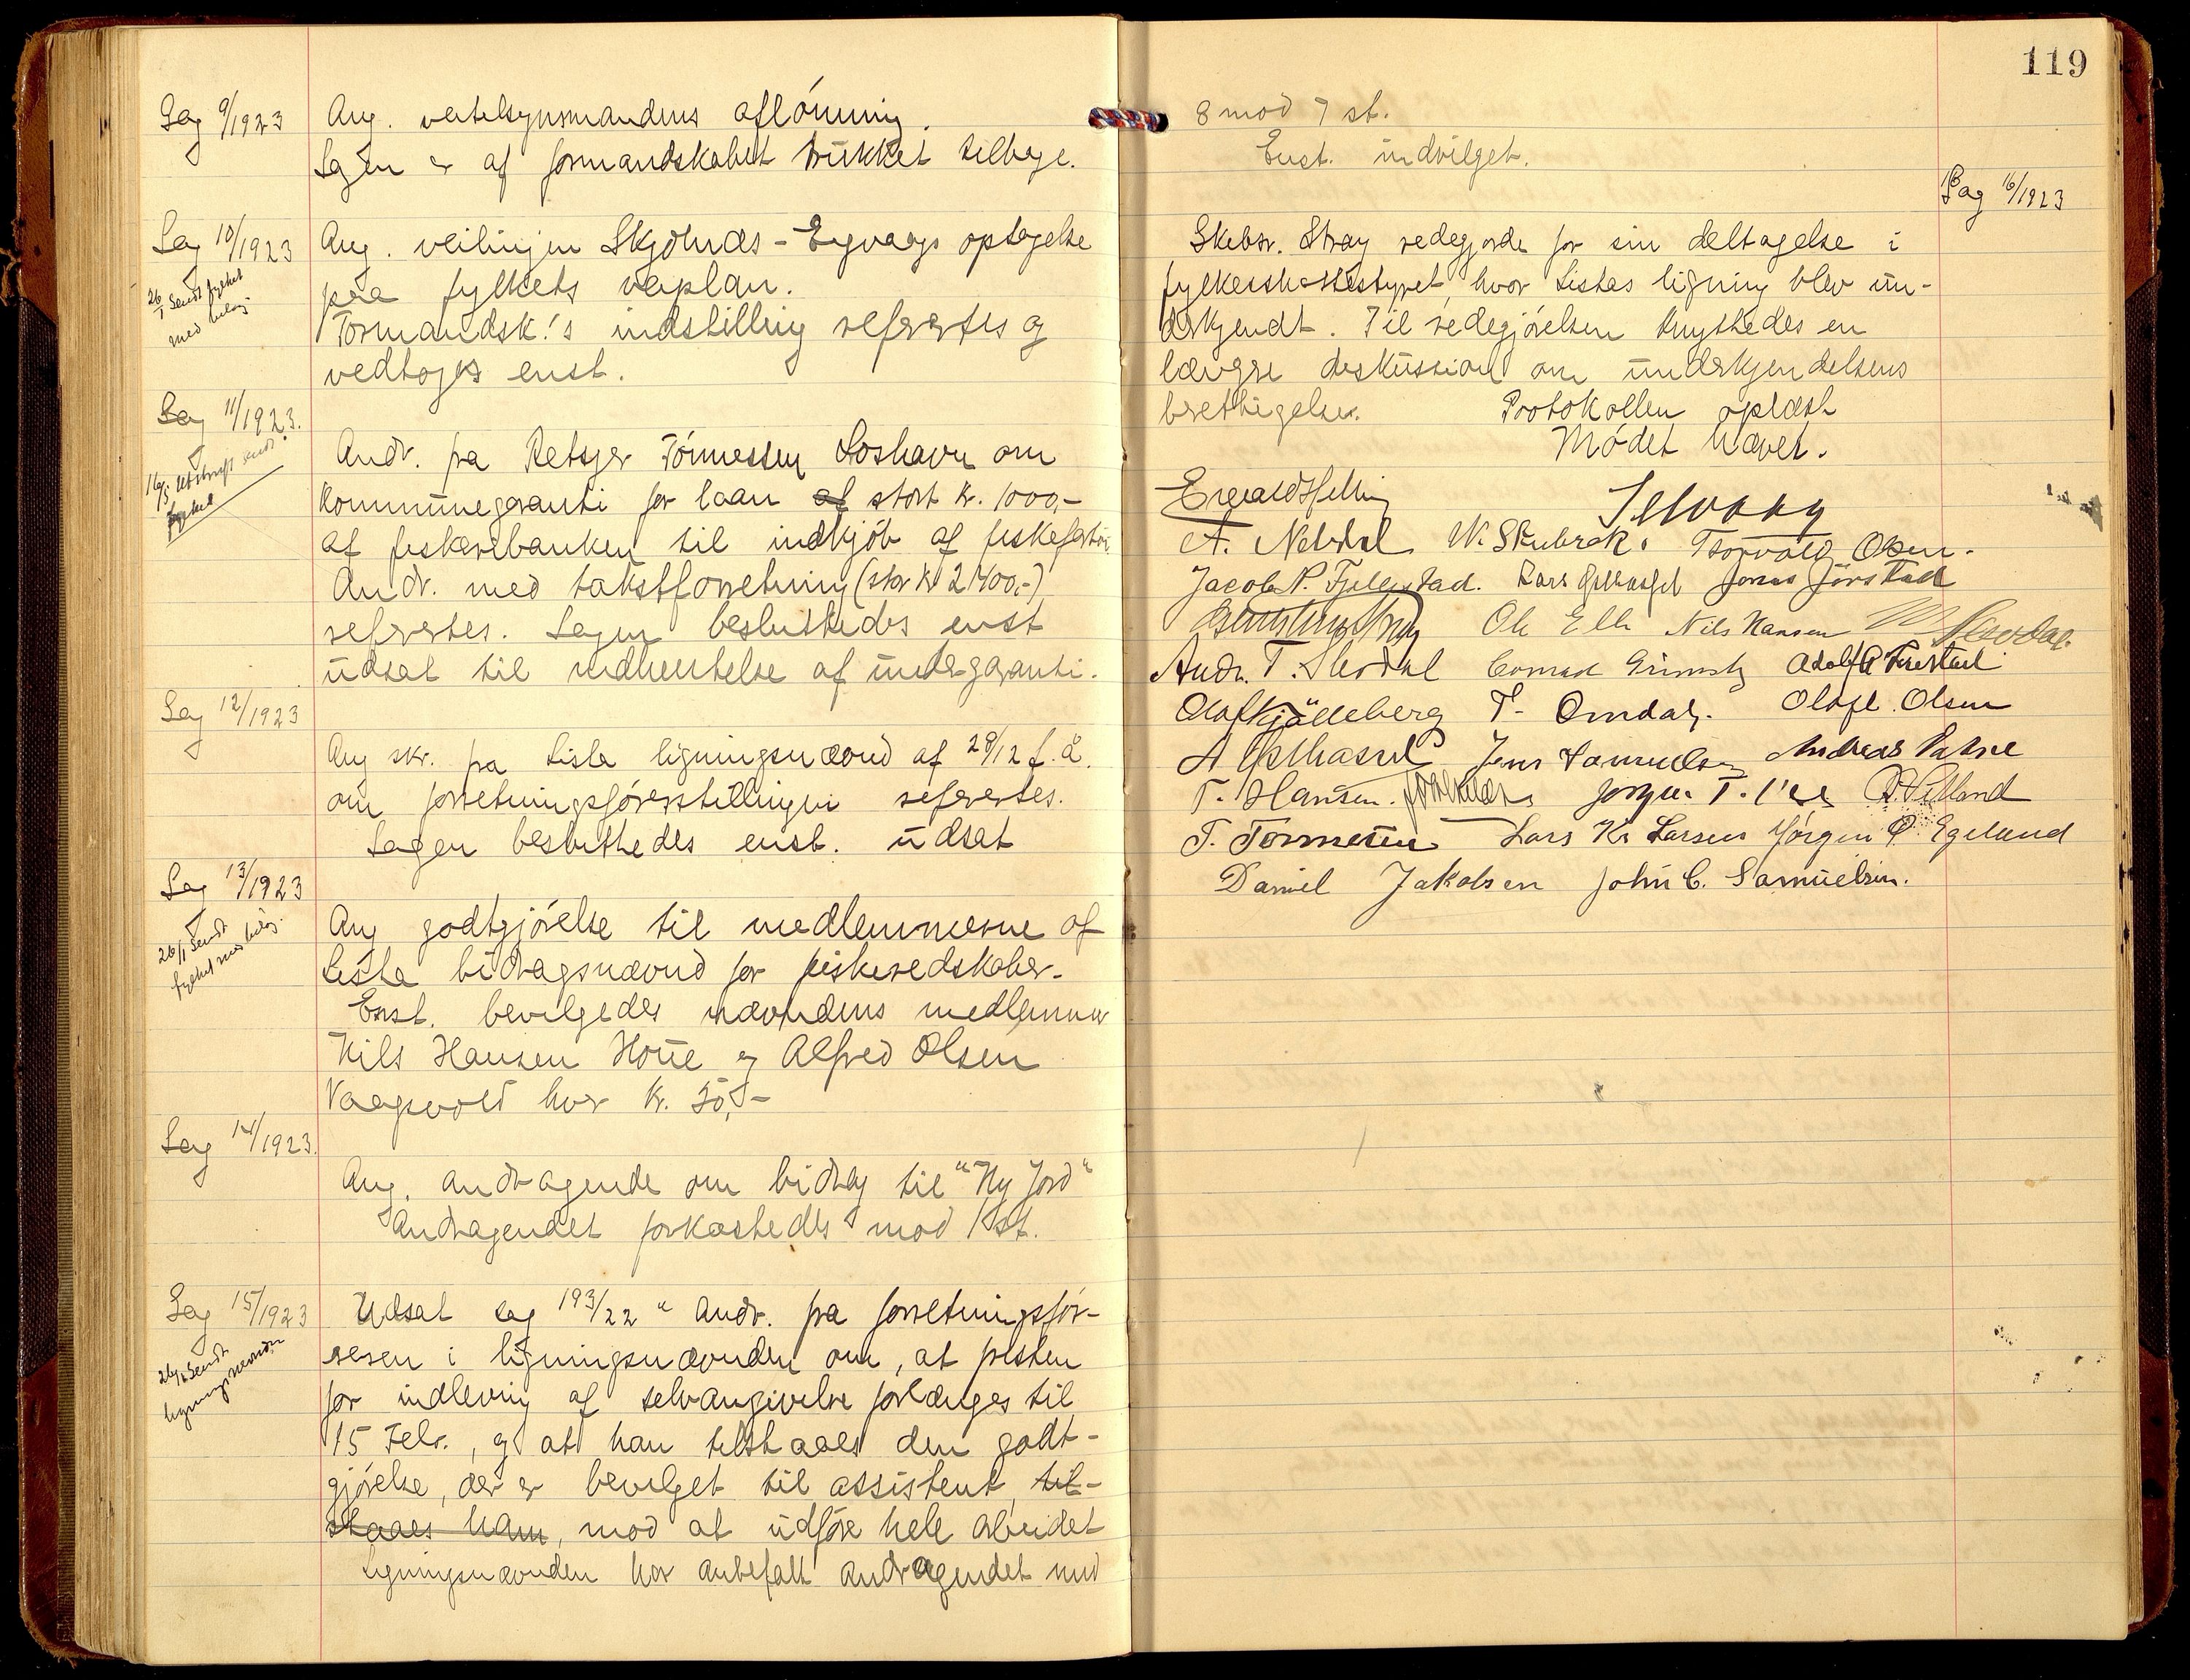 Sag 9/1923
Ang. veitilsynsmandens aflönning.
Sagen er af formandskabet trukket tilbage.
Sag 10/1923
26/1 Sendt fylket
med bilag
Ang. veilinjen Skjölnæs - Eigvaags optagelse
paa fylkets veiplan.
Formandsk.'s indstilling refertes og
vedtoges enst.
Sag 11/1923.
16/3 Utskrift sendt
fylket
Andr. fra Retsjer Tönnessen Loshavn om
kommunegaranti for laan af stort kr. 1000,-
af fiskeribanken til indkjöb af fiskefartöi
Andr. med takstforretning (stor kr 2400,-)
refertes. Sagen besluttedes enst
udsat til indhentelse af undergaranti.
Sag 12/1923
Ang skr. fra Lista ligningsnævnd af 28/12 f.å.
om forretningsförerstillingen refertes.
Sagen besluttedes enst. udsat
Sag 13/1923
26/1 Sendt
fylket med bilag.
Ang godtgjörelse til medlemmerne af
Lista bidragsnævnd for fiskeredskaber.
Enst. bevilgedes nævndens medlemmer
Nils Hansen Hoüe og Alfred Olsen
Vaagsvold hver kr. 50,-
Sag 14/1923.
Ang. andragende om bidrag til "Ny Jord"
Andragendet forkastedes mod 1 st.
Sag 15/1923
26/1 Sendt
ligningsnævnden
Udsat sag 193/22 " Andr. fra forretningsför-
reren i ligningsnævnden om, at fristen
for indlevring af selvangivelse forlænges til
15 Febr., og at han tilstaaes den godt-
gjörelse, der er bevilget til assistent, til-
staaes ham, mod at udföre hele arbeidet
Ligningsnævnden har anbefalt andragendet med
119
8 mod 7 st.
Enst. indvilget.
Sag 16/1923
Skebsr. Stray redegjorde for sin deltagelse i
fylkesskattestyret hvor Listas ligning blev un-
derkjendt. Til redegjörelsen knyttedes en
længre diskussion om underkjendelsens
berettigelse. Protokollen oplæst
Mödet hævet.
A. Nebdal W. Skubrak. Thorvald Olsen.
Jacob P. Fjellestad. Jonas Jörstad
Ole Elle Nils Hansen
Andr. T. Conrad Grimsby Adolf A
Olaf Kjölleberg T. Omdal. Olaf E. Olsen
Jens Samuelsen Andreas
T. Hansen. Jörgen T.
T. Tönnessen Lars Kr Larsen Jörgen O. Egeland
Daniel Jakobsen John C. Samuelsen.